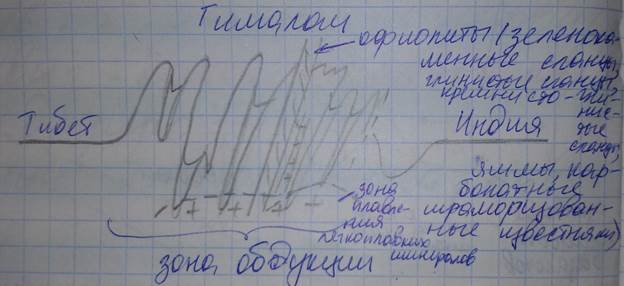 Гималаи
офиолиты (зеленока-
менные сланцы,
глинистые сланцы,
кремнисто-гли-
нис-
тые
сланцы,
Тибет
Индия
яшмы, кар-
бонатные
мраморизован-
ные известняки)
зона
плавле-
ния
легкоплавких
минералов
зона обдукции